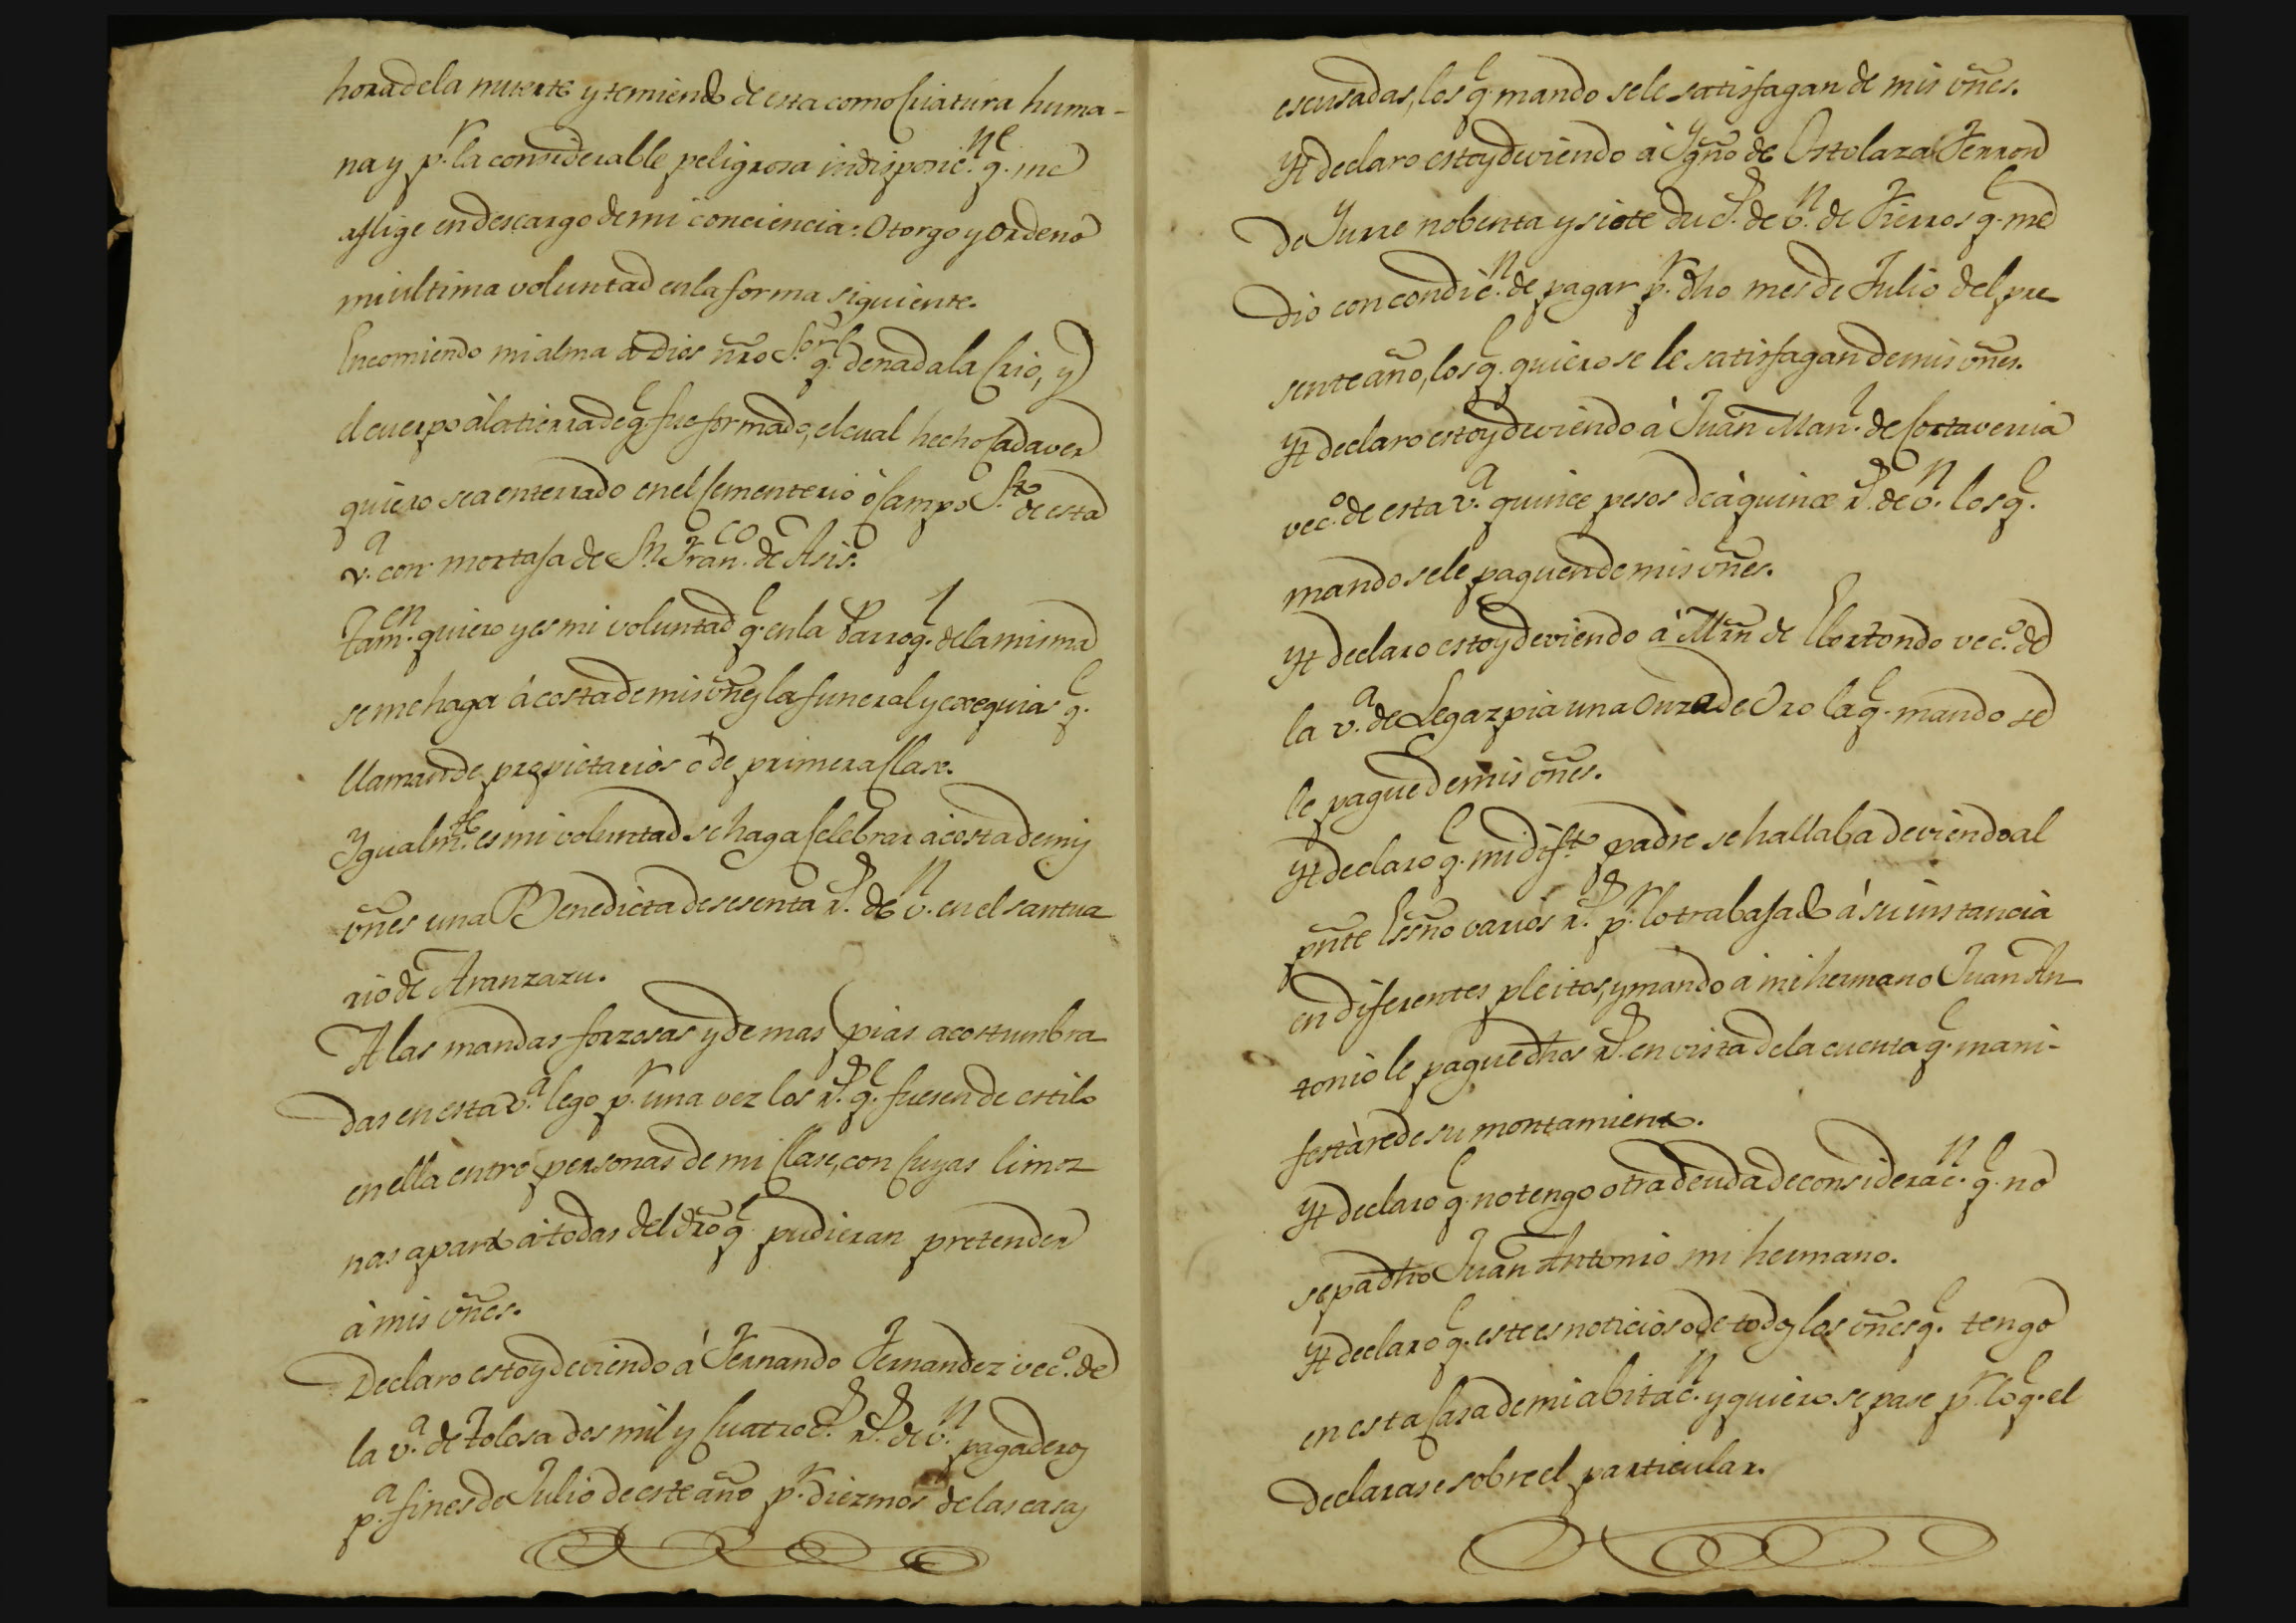 hora de la muerte y temiendo de esta como Criatura huma-
na y pr. la considerable peligrosa indisposicne. q. me
aflige en descargo de mi conciencia: Otorgo y Ordeno
mi ultima voluntad en la forma siguiente.
Encomiendo mi alma a Dios ñro Sor. q. de nada la Crio, y
el cuerpo à la tierra de q. fue formado, el cual hecho Cadaver
quiero sea enterrado en el Cementerio ò Campo Sto. de esta
va. con mortaja de Sn. Franco. de Asis.
Tamen. quiero y es mi voluntad q. en la Parroql. de la misma
se me haga à costa de mis vñes la funeral y exequias q.
llaman de propietarios ò de primera Clase.
Ygualmte. es mi voluntad se haga Celebrar à costa de mis
vñes una Benedicta de sesenta rs. de vn. en el santua
rio de Aranzazu.
A las mandas forzosas y demas pias acostumbra
das en esta va. lego pr. una vez los rs. q. fuesen de estilo
en ella entre personas de mi Clase, con Cuyas limos
nas aparto à todas del dro q. pudieran pretender
à mis vñes.
Declaro estoy deviendo à Fernando Fernandez veco. de
la va. de Tolosa dos mil y Cuatrocs. rs. de vn. pagaderos
pa. fines de Julio de este año pr. diezmos de las casas
escusadas, los q. mando se le satisfagan de mis vñes.
Yt declaro estoy deviendo à Ygño de Ostolaza Ferron
de Yurre nobenta y siete dus. de vn. de Fierros q. me
dio con condicn. de pagar pr. dho mes de Julio del pre
sente año, los q. quiero se le satisfagan de mis vñes.
Yt declaro estoy deviendo à Juan Manl. de Cortaverria
veco. de esta va. quince pesos de à quince rs. de vn. los q.
mando se le paguen de mis vñes.
Yt declaro estoy deviendo à Mrñ de Elortondo veco. de
la va. de Legazpia una Onza de Oro la q. mando se
le pague de mis vñes.
Yt declaro q. mi difto. padre se hallaba deviendo al
pñte Essño varios rs. pr. lo trabajado à su instancia
en diferentes pleitos, y mando à mi hermano Juan An
tonio le pague dhos rs. en vista de la cuenta q. mani-
festàre de su montamiento.
Yt declaro q. no tengo otra deuda de consideracn. q. no
sepa dho Juan Antonio mi hermano.
Yt declaro q. este es noticioso de todos los vñes q. tengo
en esta Casa de mi abitacn. y quiero se pase pr. lo q. el
declarase sobre el particular.